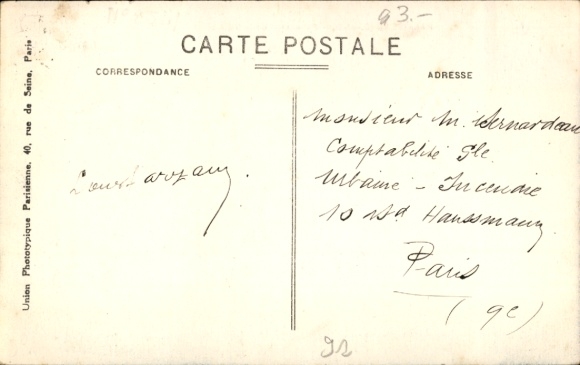 93.-
CARTE POSTALE
CORRESPONDANCE
ADRESSE
Union Phototypique Parisienne, 40, rue de Seine, Paris
Monsieur M. Bernardeau
Comptabilité Gle
Urbaine - Incendie
10 Bd Haussmann
Paris
(9e)